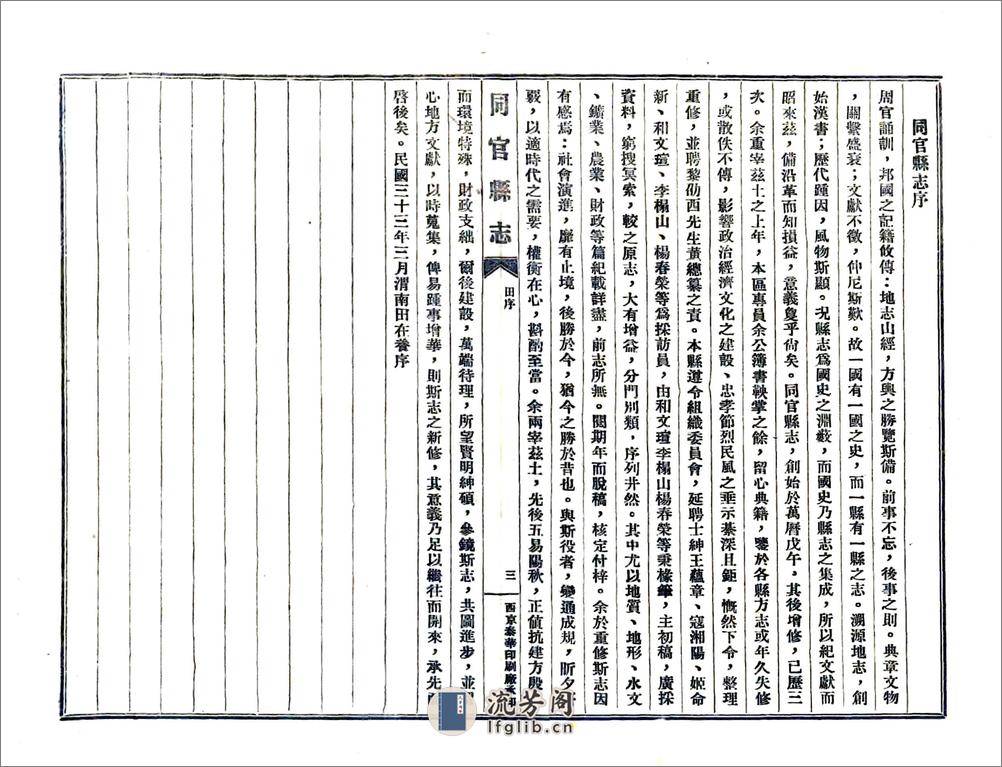 同官縣志序
周官誦訓，邦國之記籍攸傳：地志山經，方輿之勝覽斯備。前事不忘，後事之則。典章文物
，關繫盛衰；文獻不徵，仲尼斯歎。故一國有一國之史，而一縣有一縣之志。溯源地志，創
始漢書；歷代踵因，風物斯顯。况縣志爲國史之淵藪，而國史乃縣志之集成，所以紀文獻而
昭來茲，備沿革而知損益，意義敻乎尙矣。同官縣志，創始於萬曆戊午。其後增修，已歷三
次。余重宰茲土之上年，本區專員余公簿書鞅掌之餘，留心典籍，鑒於各縣方志或年久失修
，或散佚不傳，影響政治經濟文化之建設、忠孝節烈民風之垂示綦深且鉅，慨然下令，整理
重修，並聘黎劭西先生董總纂之責。本縣遵令組織委員會，延聘士紳王蘊章、寇湘陽、姬命
新、和文瑄、李榻山、楊春榮等爲採訪員，由和文瑄李榻山楊春榮等秉椽筆，主初稿，廣採
資料，窮搜冥索，較之原志，大有增益，分門別類，序列井然。其中尤以地質、地形、水文
、鑛業、農業、財政等篇紀載詳盡，前志所無。閱期年而脫稿，核定付梓。余於重修斯志因
有感焉：社會演進，靡有止境，後勝於今，猶今之勝於昔也。與斯役者，變通成規，昕夕
毅，以適時代之需要，權衡在心，斟酌至當。余兩宰茲土，先後五易陽秋，正値抗建方殷
同官縣志
田序
三
西京泰華印刷廠
而環境特殊，財政支絀，爾後建設，萬端待理，所望賢明紳碩，參鏡斯志，共圖進步，並
心地方文獻，以時蒐集，俾易踵事增華，則斯志之新修，其意義乃足以繼往而開來，承先
啓後矣。民國三十三年三月渭南田在養序
流芳阁
lfglib.cn